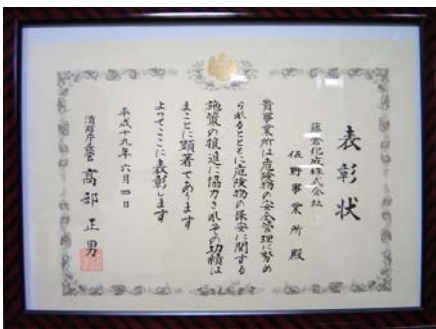 表彰状
藤倉化成株式会社
佐野事業所殿
貴事業所は危険物の安全管理に努め
られるとともに危険物の保安に関する
施策の推進に協力されその功績は
まことに顕著であります
よってここに表彰します
平成十九年六月四日
消防庁長官 高部正男